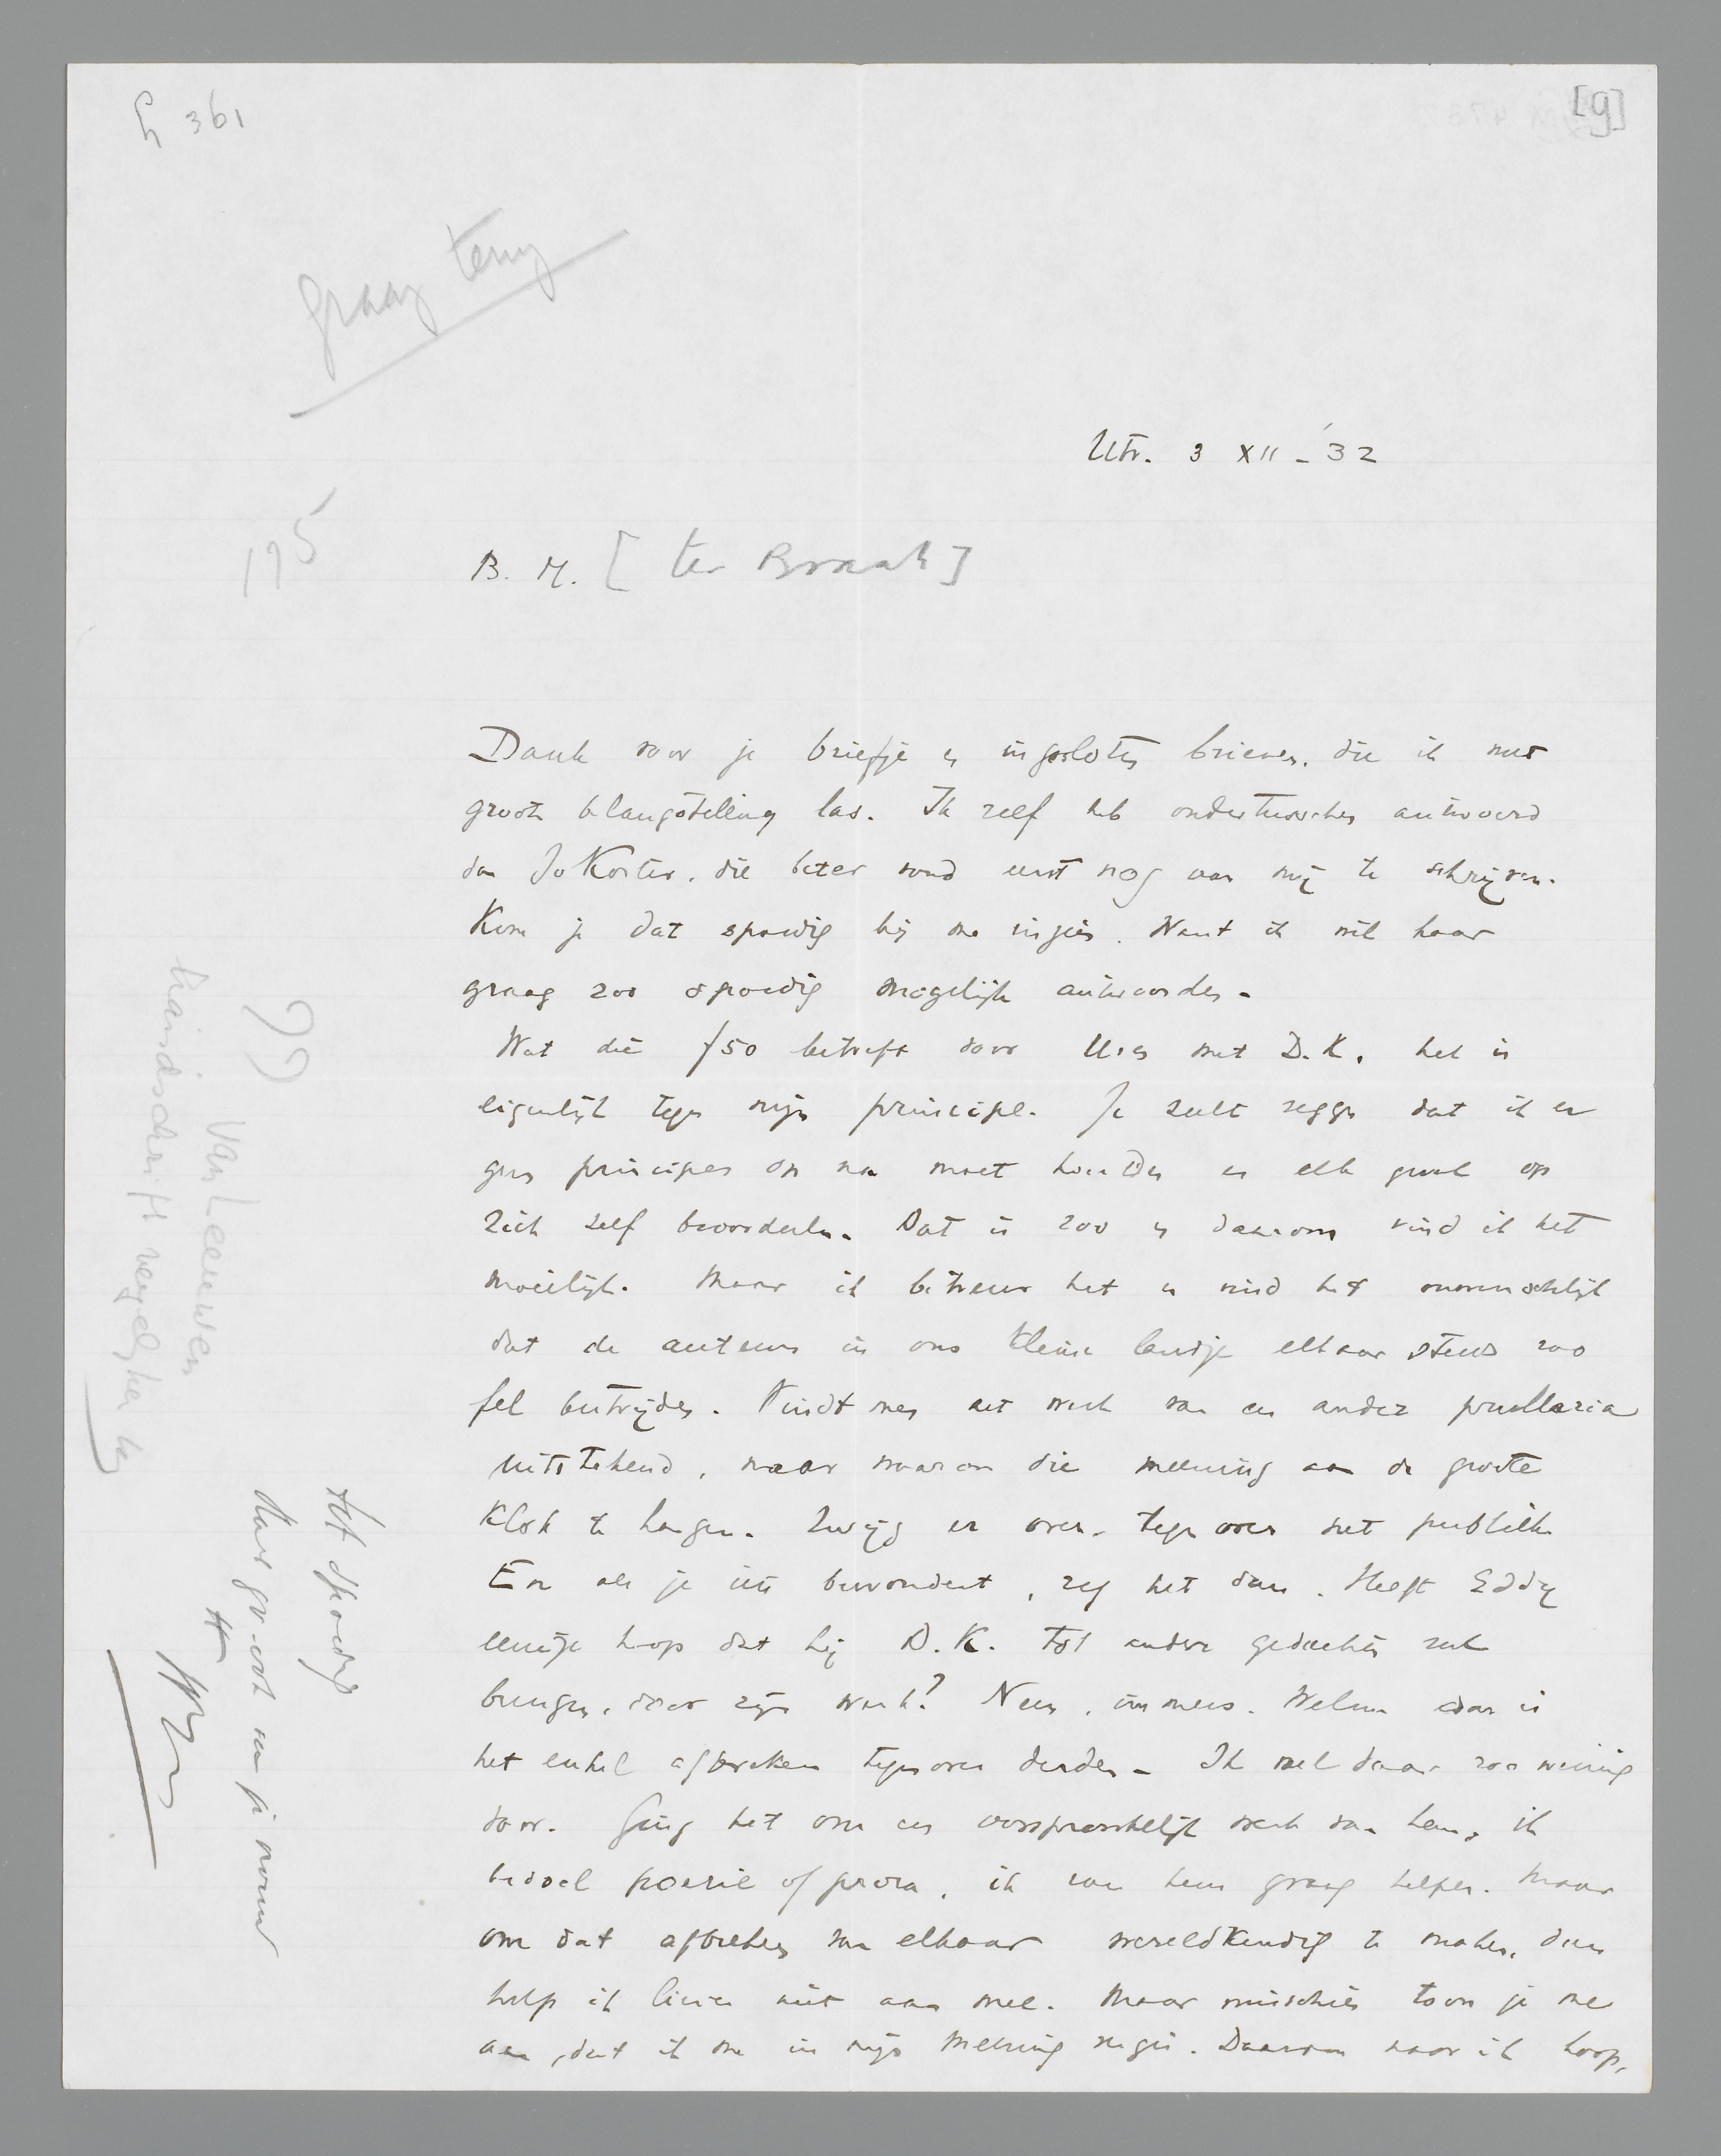 G 361
[g]
graag terug
Utr. 3 XII - '32
175
B. M. [ter Braak]
Dank voor je briefje en ingesloten brieven, die ik met
groote belangstelling las. Ik zelf heb ondertusschen antwoord
van Jo Koster, die beter vond eerst nog aan mij te schrijven.
Kom je dat spoedig bij me inzien. Want ik wil haar
graag zoo spoedig mogelijk antwoorden -
Wat die f50 betreft voor Uren met D.K., het is
eigenlijk tegen mijn principe. Je zult zeggen dat ik er
geen principes op na moet houden en elk geval op
zich zelf beoordeelen. Dat is zoo en daarom vind ik het
moeilijk. Maar ik betreur het en vind het onmenschelijk
dat de auteurs in ons kleine landje elkaar steeds zoo
fel bestrijden. Vindt men het werk van een ander prullaria
uitstekend, maar waarom die meening aan de groote
klok te hangen. Zwijg er over, tegenover het publiek
En als je iets bewondert, zeg het dan. Heeft Eddy
eenige hoop dat hij D.K. tot andere gedachten zal
brengen, door zijn werk? Neen, immers. Welnu dan is
het enkel afbreken tegenover derden - Ik voel daar zoo weinig
voor. Ging het om een oorspronkelijk werk van hem, ik
bedoel poezie of proza, ik zou hem graag helpen. Maar
om dat afbreken van elkaar wereldkundig te maken, daar
help ik liever niet aan mee. Maar misschien toon je me
aan, dat ik me in mijn meening vergis. Daarom naar ik hoop,
tot spoedig
Har. gr. ook aan je vrouw
99
Van Leeuwen
handschrift vergelijken bij